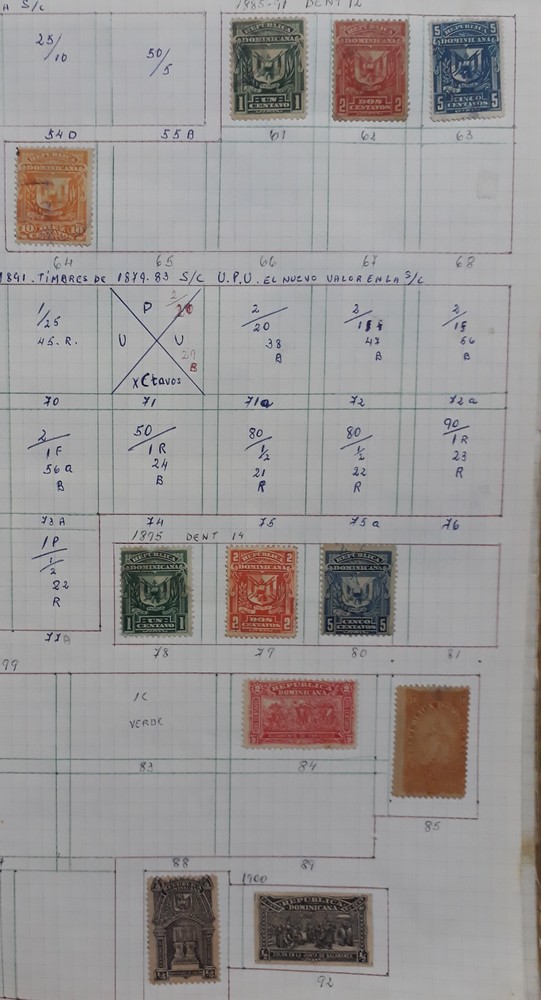 A S/C
1885-91 DENT 12
25/10
50/5
REPUBLICA
DOMINICANA
1 UN 1
CENTAVO
REPUBLICA
DOMINICANA
2 DOS 2
CENTAVOS
5 REPUBLICA 5
DOMINICANA
5 CINCO 5
CENTAVOS
54D
55B
61
62
63
REPUBLICA
DOMINICANA
10 DIEZ 10
CENTAVOS
64
65
66
67
68
1891. TIMBRES DE 1879.83 S/C U.P.U. EL NUEVO VALOR EN LA S/C
1/25
45. R.
P
U U
XCtavos
2/20
29
B
2/20
38
B
2/
47
B
2/15
56
B
70
71
71a
72
72a
2/
56a
B
50/1R
24
B
80/½
21
R
80/½
22
R
90/1R
23
R
73A
74
75
75a
76
1P/½
22
R
77A
1895 DENT 14
REPUBLICA
DOMINICANA
1 UN 1
CENTAVO
2 REPUBLICA 2
DOMINICANA
2 DOS 2
CENTAVOS
REPUBLICA
DOMINICANA
5 CINCO 5
CENTAVOS
78
79
80
81
99
1C
VERDE
REPUBLICA
DOMINICANA
83
84
85
88
89
1900
REPUBLICA
DOMINICANA
COLON EN LA JUNTA DE SALAMANCA
92